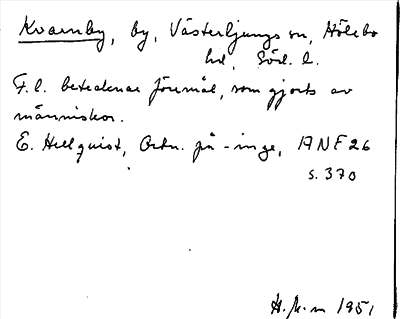 Kvarnby, by, Västerljungs sn, Hölebo
hd, Södl. l.
F.l. betecknar föremål, som gjorts av
människor.
E. Hellquist, Ortn. på -inge, ANF 26
s. 370
1951